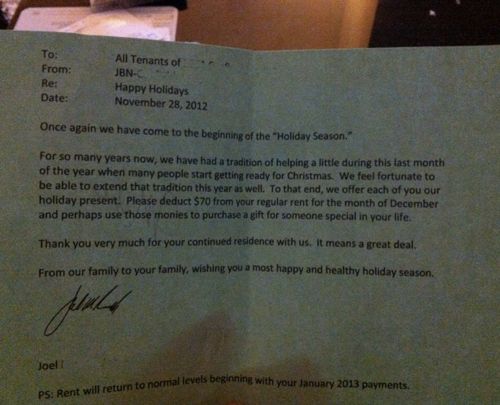 To: All Tenants of
From: JBN-
Re: Happy Holidays
Date: November 28, 2012
Once again we have come to the beginning of the "Holiday Season."
For so many years now, we have had a tradition of helping a little during this last month
of the year when many people start getting ready for Christmas. We feel fortunate to
be able to extend that tradition this year as well. To that end, we offer each of you our
holiday present. Please deduct $70 from your regular rent for the month of December
and perhaps use those monies to purchase a gift for someone special in your life.
Thank you very much for your continued residence with us. It means a great deal.
From our family to your family, wishing you a most happy and healthy holiday season.
Joel
PS: Rent will return to normal levels beginning with your January 2013 payments.